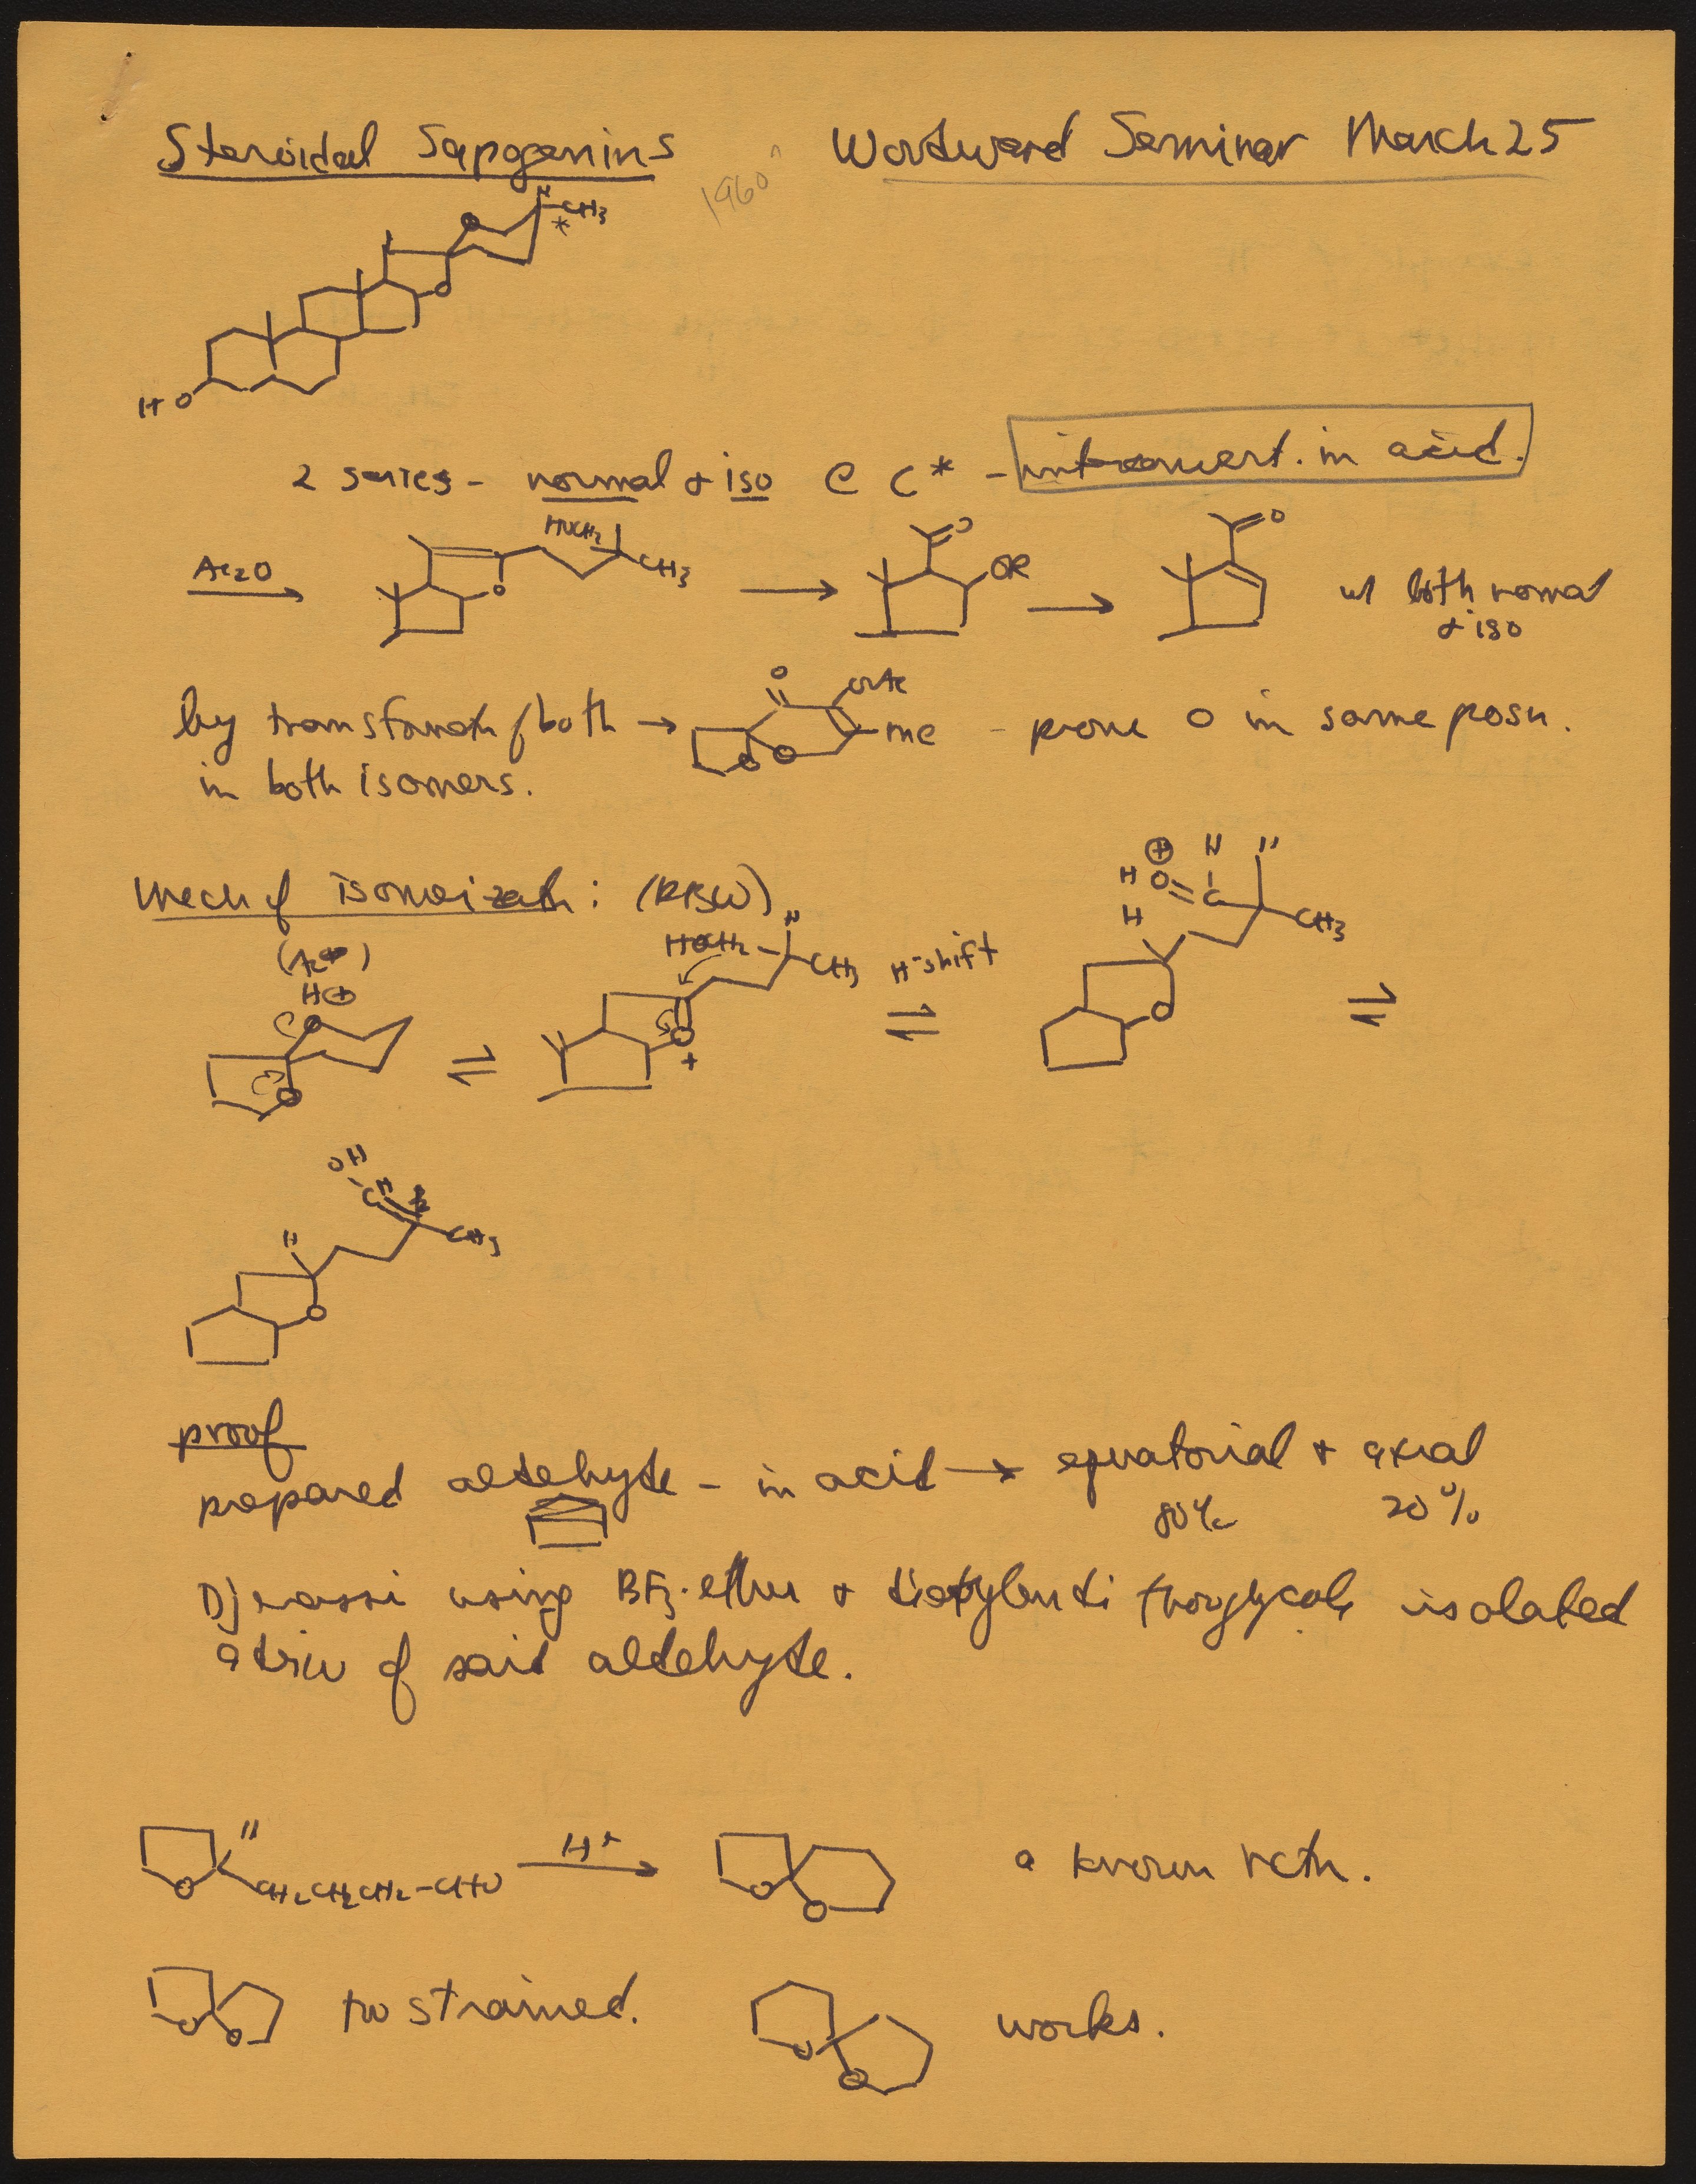 Steroidal Sapogenins 1960 Woodward Seminar March 25
H CH3
*
O
O
HO
2 series - normal & iso @ C* - interconvert. in acid.
Ac2O HOCH2 CH3 O O OR O w/ both normal
& iso
by transformatn of both → O OAc Me O O - prove O in same posn.
in both isomers.
Mech of isomerizatn: (RBW)
(Ac⊕)
H⊕ O O HOCH2 H CH3 O + H⁻ shift ⊕ H H H O C H CH3 O
OH
C H CH3
H
O
proof
prepared aldehyde - in acid → equatorial & axial
80% 20%
Djerassi using BF3·ether & isolated
a driv of said aldehyde.
O H CH2CH2CH2-CHO H+ O O a known rctn.
O O too strained. O O works.